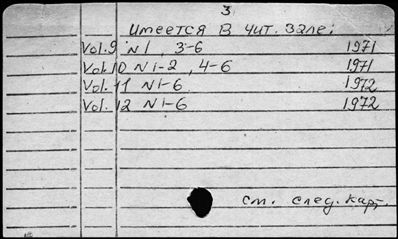 3.
Имеется в чит. зале:
Vol. 9 N 1, 3-6 1971
Vol. 10 N 1-2, 4-6 1971
Vol. 11 N 1-6 1972
Vol. 12 N 1-6 1972
см. след. карт.